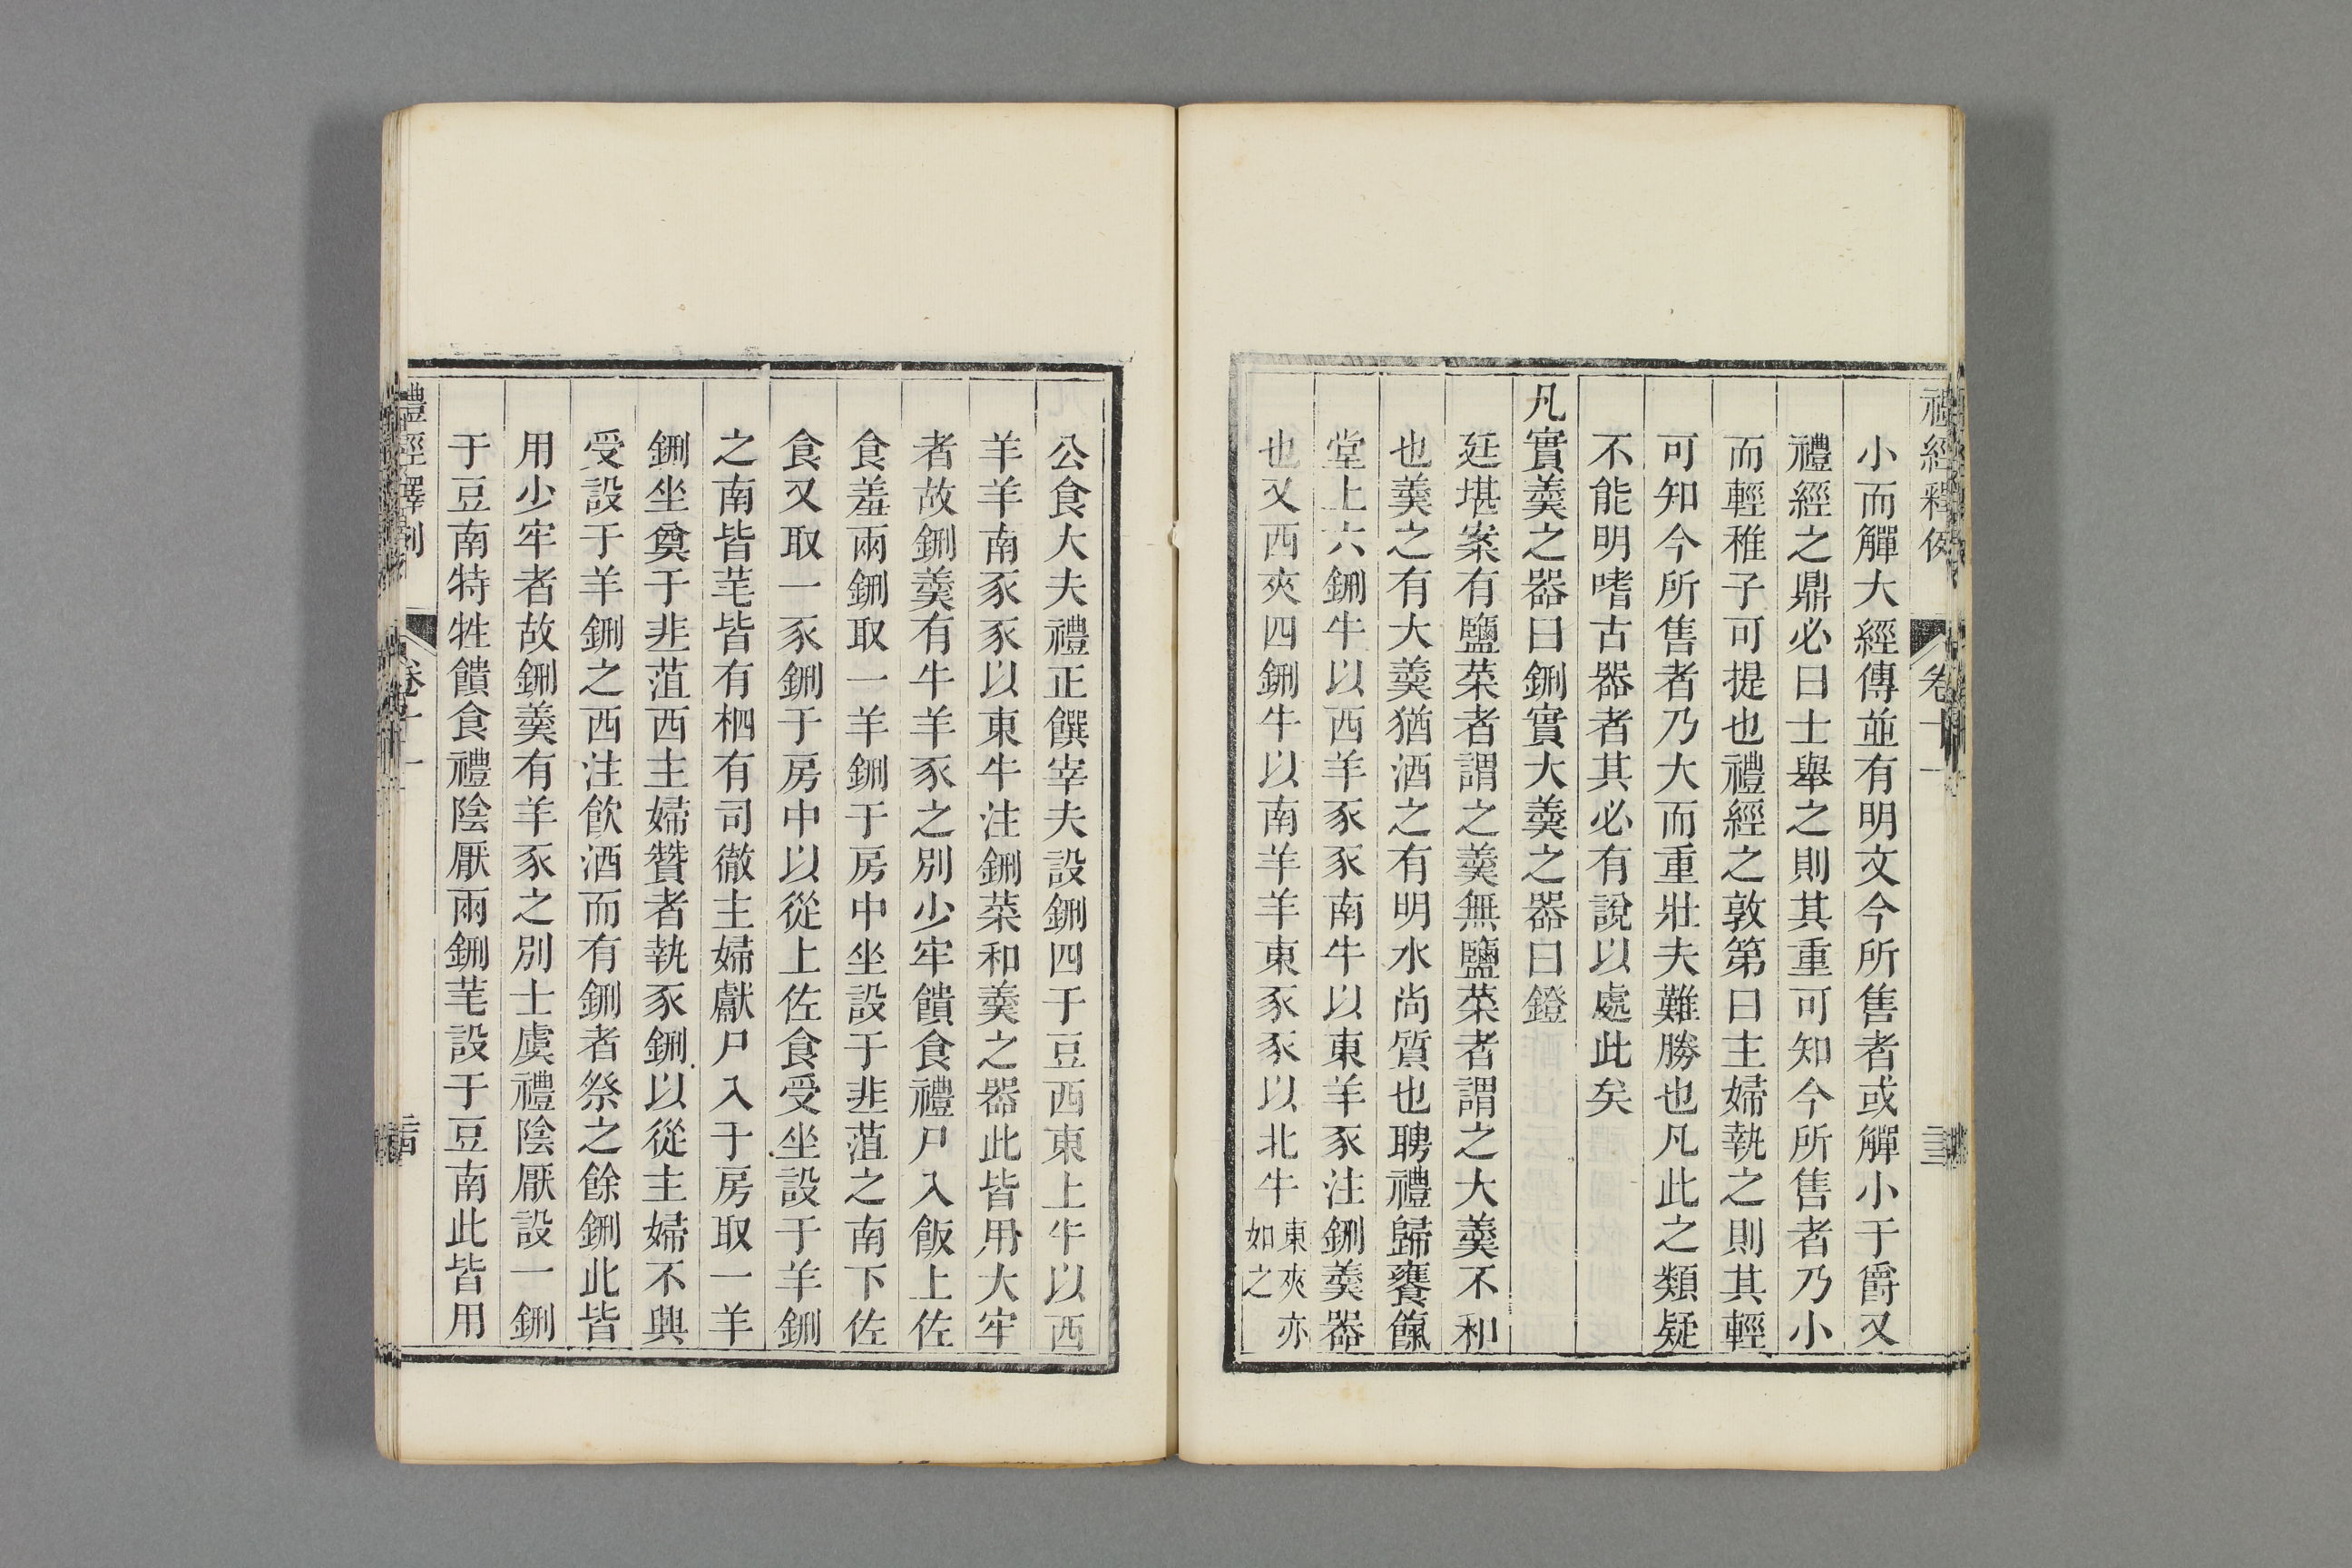 禮經釋例 卷十一
小而觶大經傳並有明文今所售者或觶小于爵又
禮經之鼎必曰士舉之則其重可知今所售者乃小
而輕稚子可提也禮經之敦第曰主婦執之則其輕
可知今所售者乃大而重壯夫難勝也凡此之類疑
不能明嗜古器者其必有說以處此矣
凡實羹之器曰鉶實大羹之器曰鐙
廷堪案有鹽菜者謂之羹無鹽菜者謂之大羹不和
也羹之有大羹猶酒之有明水尚質也聘禮歸饔餼
堂上六鉶牛以西羊豕豕南牛以東羊豕注鉶羹器
也又西夾四鉶牛以南羊羊東豕豕以北牛東夾亦如之
公食大夫禮正饌宰夫設鉶四于豆西東上牛以西
羊羊南豕豕以東牛注鉶菜和羹之器此皆用大牢
者故鉶羹有牛羊豕之別少牢饋食禮尸入飯上佐
食羞兩鉶取一羊鉶于房中坐設于韭菹之南下佐
食又取一豕鉶于房中以從上佐食受坐設于羊鉶
之南皆芼皆有柶有司徹主婦獻尸入于房取一羊
鉶坐奠于韭菹西主婦贊者執豕鉶以從主婦不興
受設于羊鉶之西注飲酒而有鉶者祭之餘鉶此皆
用少牢者故鉶羹有羊豕之別士虞禮陰厭設一鉶
于豆南特牲饋食禮陰厭兩鉶芼設于豆南此皆用
禮經釋例 卷十一